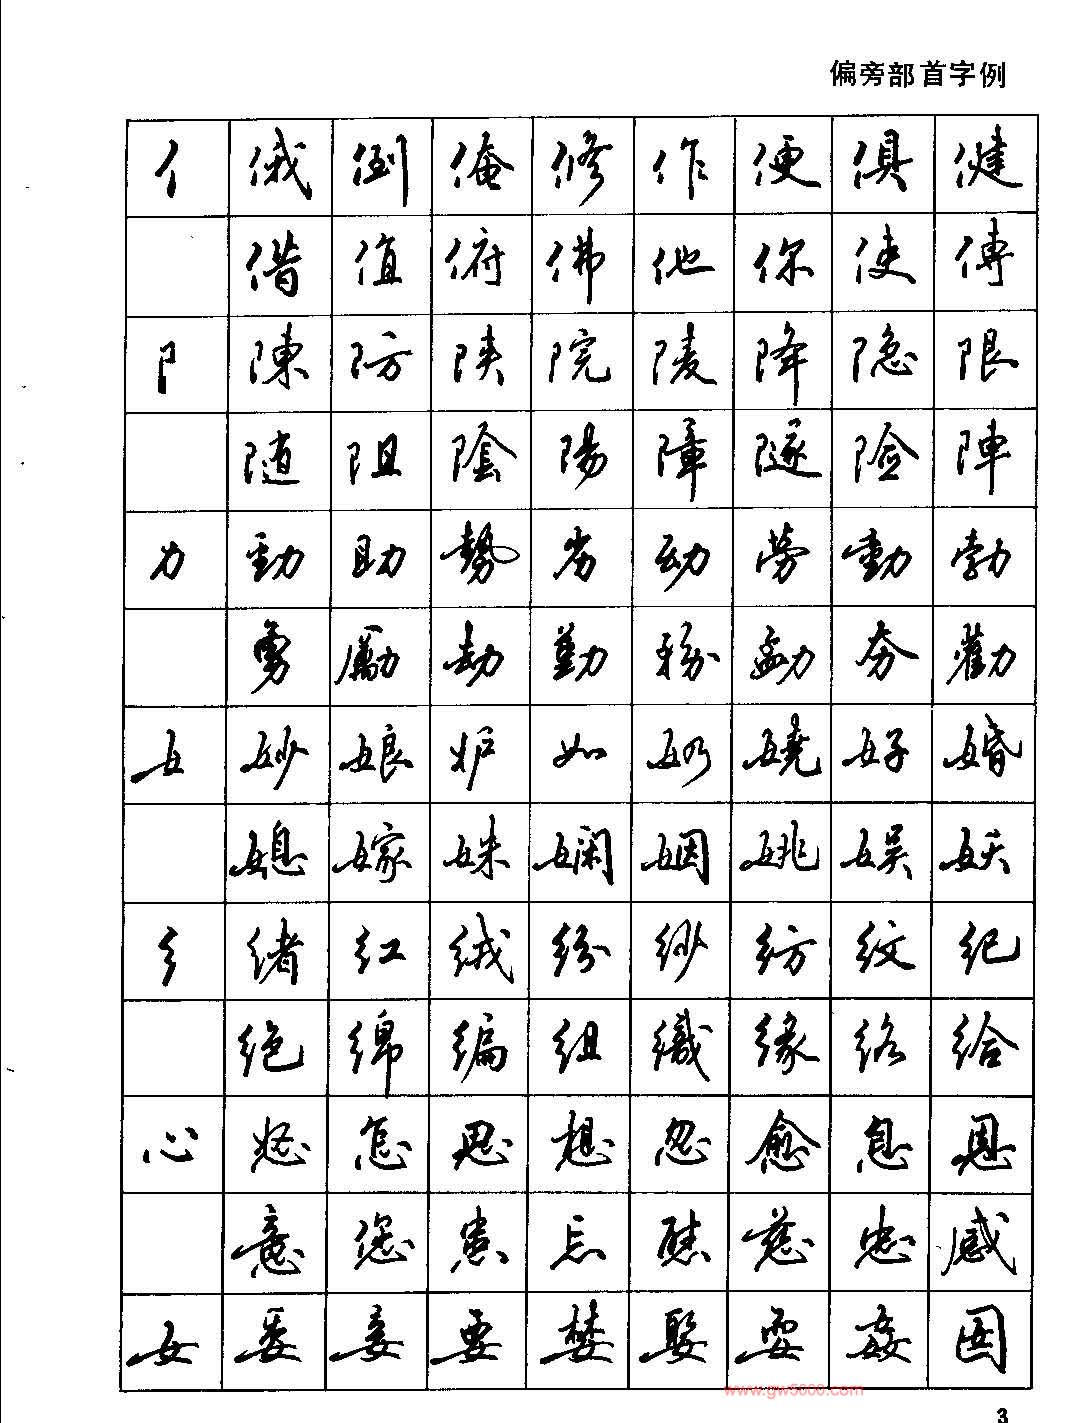 偏旁部首字例
亻 俄 倒 俺 修 作 便 俱 健
借 值 俯 佛 他 你 使 傅
阝 陳 防 陕 院 陵 降 隐 限
随 阻 陰 陽 障 隧 险 陣
力 動 助 勢 劣 动 劳 勤 勃
勇 勵 劫 勤 務 勐 夯 勸
女 妙 娘 妒 如 娥 嬈 好 婚
媳 嫁 姝 嫻 姻 姚 娱 妖
纟 绪 红 绒 纷 纱 纺 纹 纪
绝 绵 编 组 織 缘 络 给
心 怒 怎 思 想 忽 愈 息 恩
意 您 患 忘 慈 忠 感
女 委 妾 要 娶 耍 姦
www.gw5000.com
3